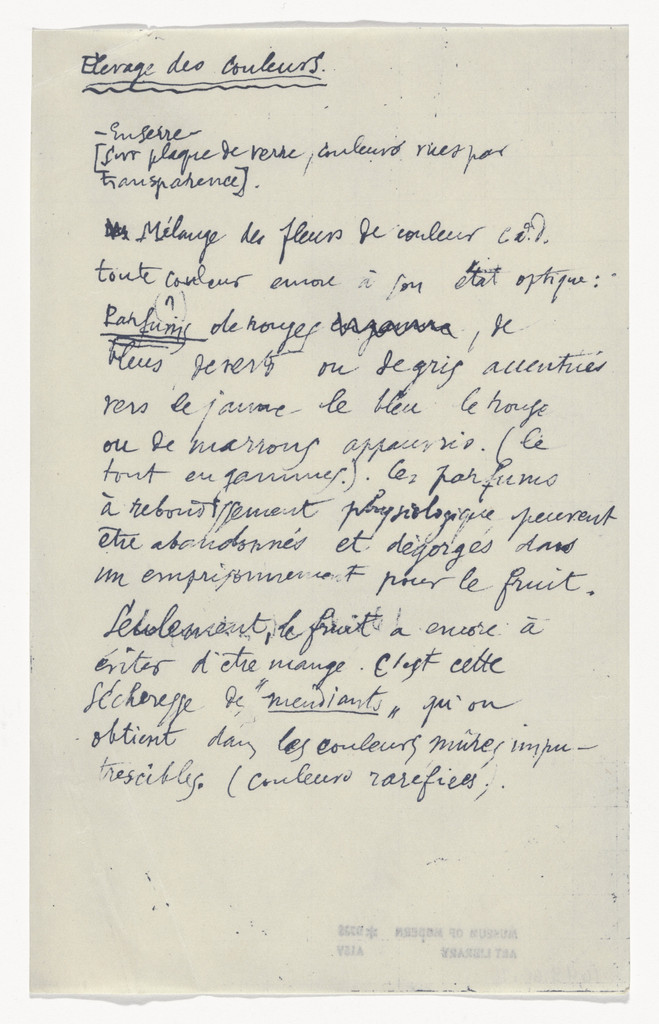 Elevage des Couleurs.
– En serre –
[sur plaque de verre, couleurs vues par
transparence].
Mélange des fleurs de couleur c.à.d.
toute couleur encore à son état optique :
(?)
Parfums de rouges, de
bleus de verts ou de gris accentués
vers le jaune le bleu le rouge
ou de marrons appauvris. (le
tout en gammes.). Ces parfums
à rebondissement physiologique peuvent
être abandonnés et dégorgés dans
un emprisonnement pour le fruit.
Seulement, le fruit a encore à
éviter d'être mangé. C'est cette
sécheresse de "mendiants" qu'on
obtient dans les couleurs mûres impu-
trescibles. (couleurs raréfiées).
MUSEUM OF MODERN
ART LIBRARY